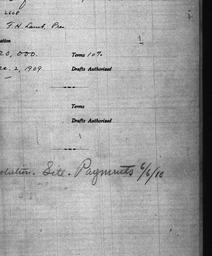 T. H. Lamb, Pres
20,000. Terms 10%
c. 2, 1909 Drafts Authorized
Terms
Drafts Authorized
Site - Payments 6/6/10